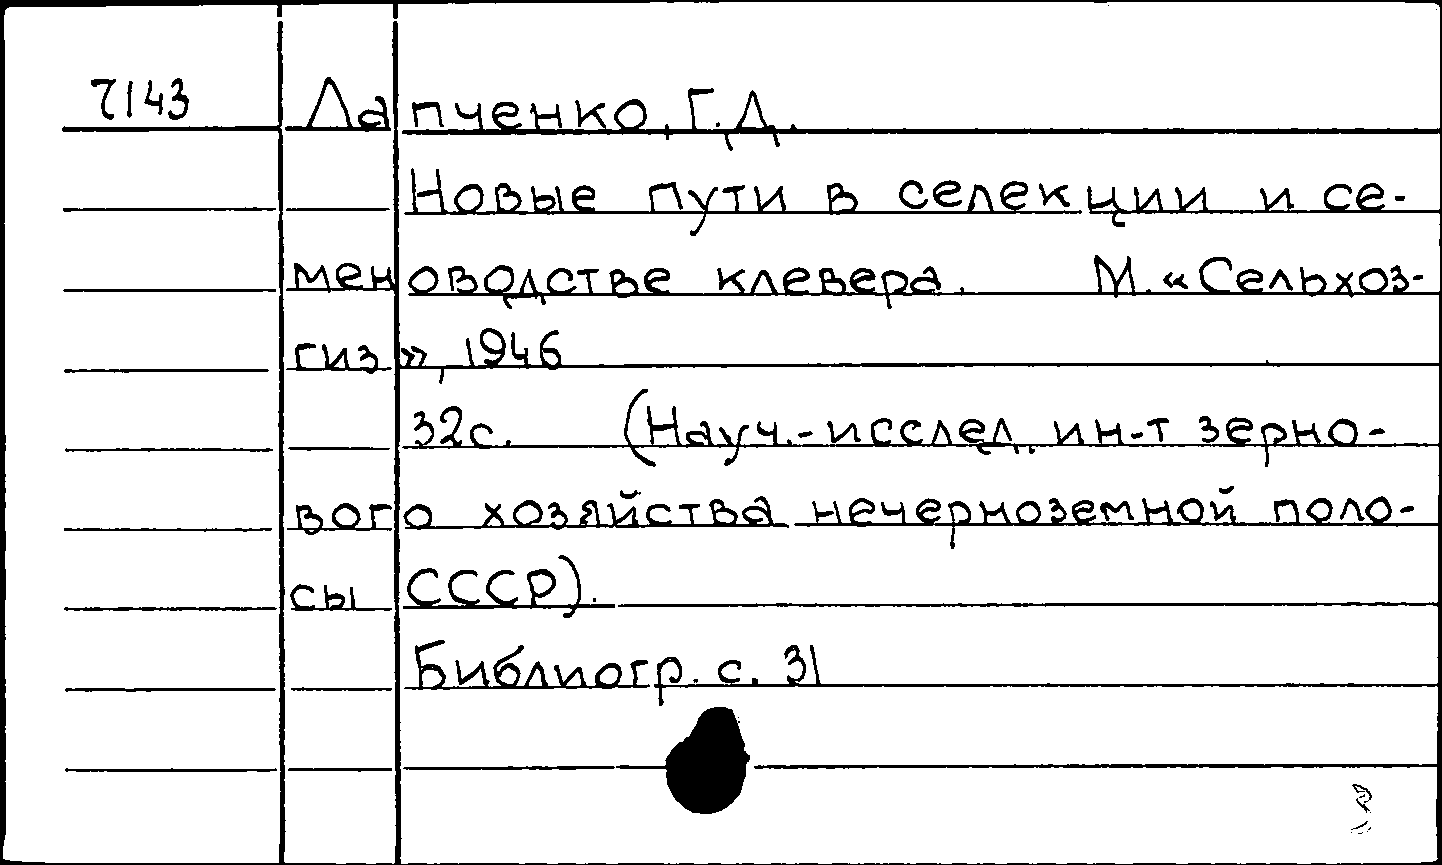 7143 Лапченко, Г.Д.
Новые пути в селекции и се-
меноводстве клевера. М. «Сельхоз-
гиз», 1946
32с. (Науч.-исслед. ин-т зерно-
вого хозяйства нечерноземной поло-
сы СССР).
Библиогр. с. 31